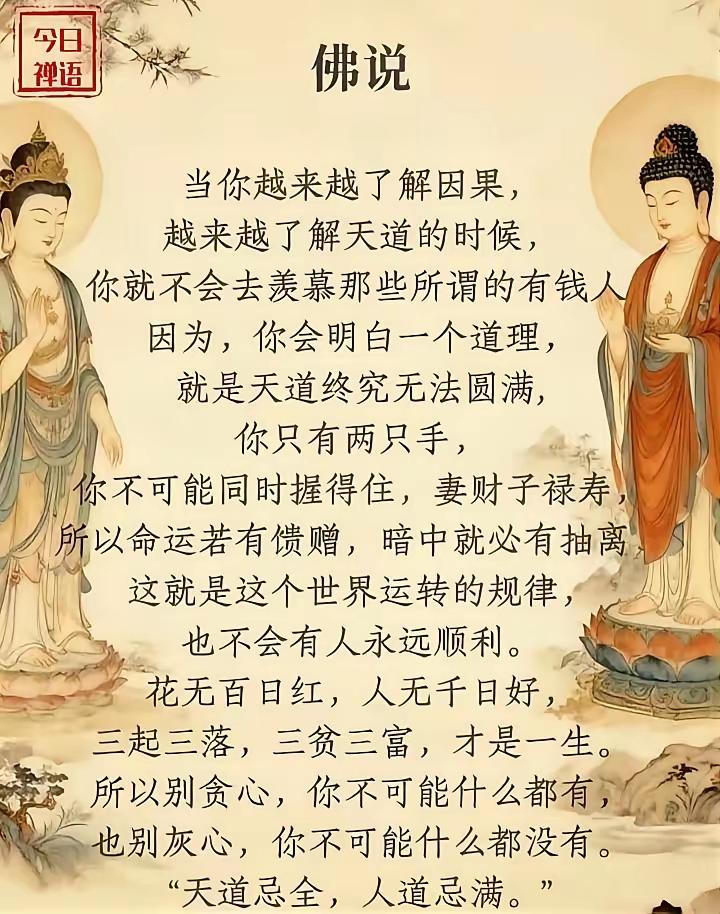 今日
禅语
佛说
当你越来越了解因果，
越来越了解天道的时候，
你就不会去羡慕那些所谓的有钱人
因为，你会明白一个道理，
就是天道终究无法圆满，
你只有两只手，
你不可能同时握得住，妻财子禄寿，
所以命运若有馈赠，暗中就必有抽离
这就是这个世界运转的规律，
也不会有人永远顺利。
花无百日红，人无千日好，
三起三落，三贫三富，才是一生。
所以别贪心，你不可能什么都有，
也别灰心，你不可能什么都没有。
“天道忌全，人道忌满。”